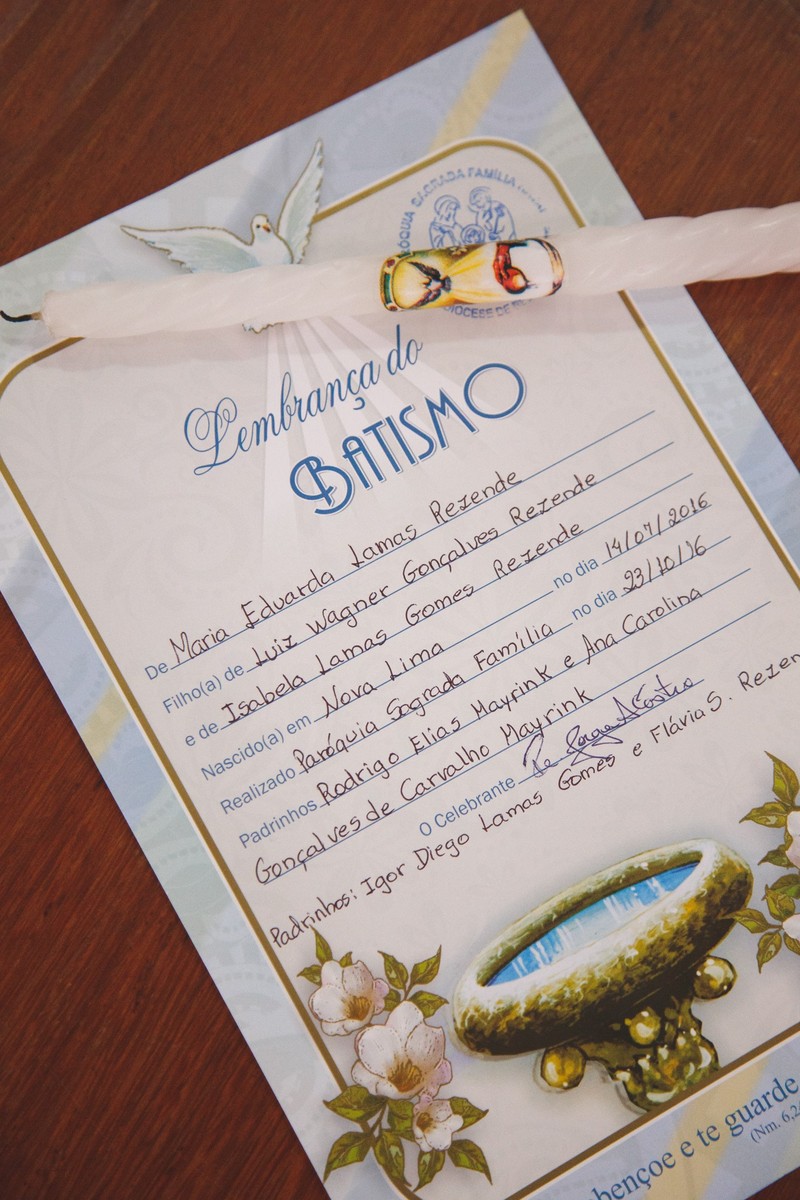 SAGRADA FAMÍLIA
Lembrança do
BATISMO
De Maria Eduarda Lamas Rezende
Filho(a) de Luiz Wagner Gonçalves Rezende
e de Isabela Lamas Gomes Rezende
Nascido(a) em Nova Lima no dia 14/07/2016
Realizado Paróquia Sagrada Família no dia 23/10/16
Padrinhos Rodrigo Elias Mayrink e Ana Carolina
Gonçalves de Carvalho Mayrink
O Celebrante Pe
Padrinhos: Igor Diego Lamas Gomes e Flávia S. Rezen
bençoe e te guarde
(Nm. 6,2